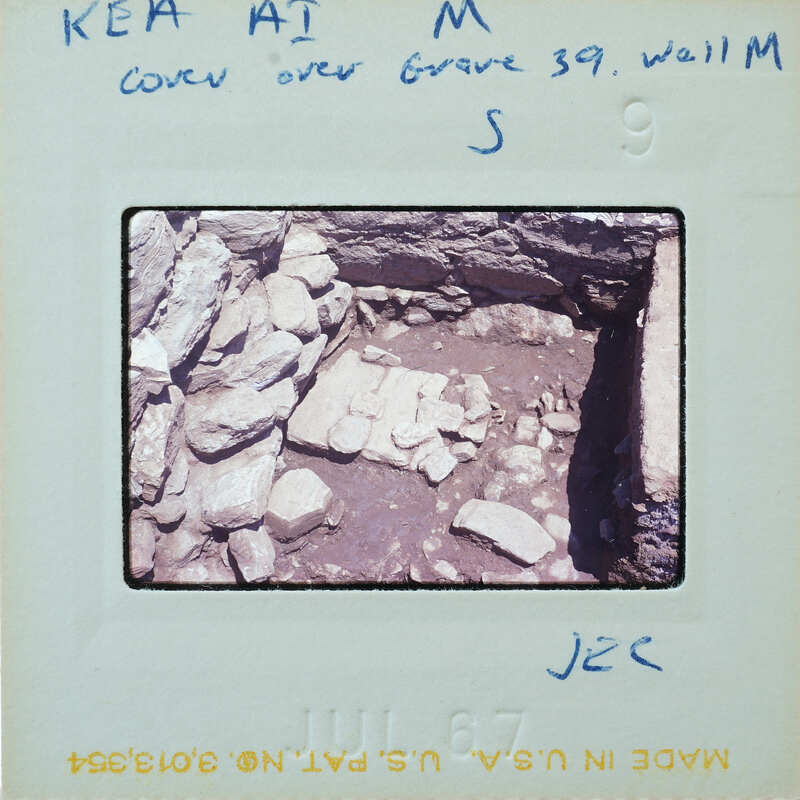 KEA AI M
Cover over Grave 39. Wall M
S
9
JEC
JUL 67
MADE IN U.S.A. U.S. PAT. NO. 3,013,354